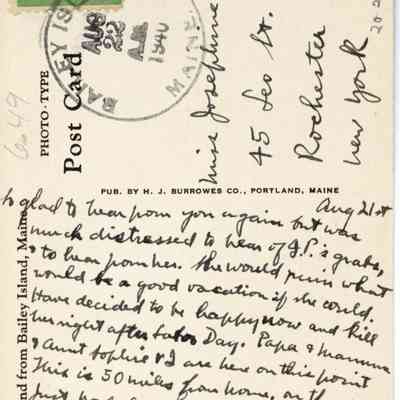 BAILEY IS
AUG
22
A.M.
1940
MAINE
6049
20-2
PHOTO-TYPE
Post Card
Miss Josephine
45 Leo St.
Rochester
New York
PUB. BY H. J. BURROWES CO., PORTLAND, MAINE
nd from Bailey Island, Maine
Aug 21st
So glad to hear from you again but was
much distressed to hear of J.P.'s
& to hear from her. She would what
would be a good vacation if she could.
Have decided to be happy now and kill
her night after Labor Day. Papa & Mamma
& Aunt Sophie & I are here on this point
This is 50 miles from home, on th
Just